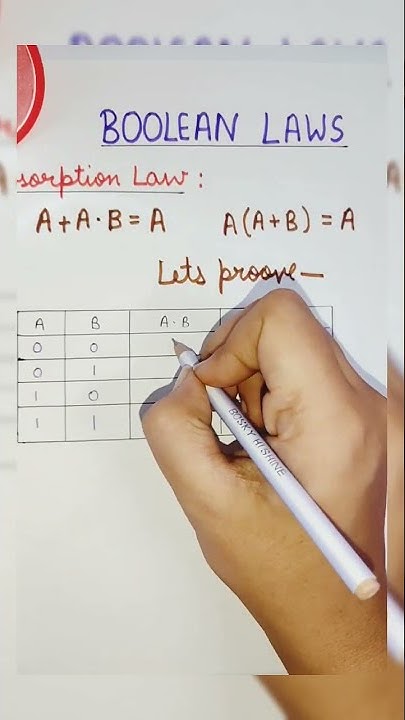 BOOLEAN LAWS
sorption Law :
A + A · B = A A(A+B) = A
Lets proove —
A B A · B
0 0
0 1
1 0
1 1
BOSKY HISHINE